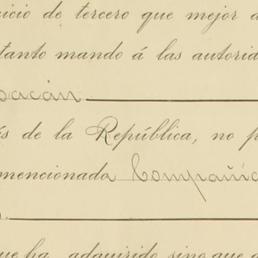 icio de tercero que mejor d
tanto mando á las autorid
oacán
is de la República, no p
mencionada Compañia
s.
que ha adquirido sino que